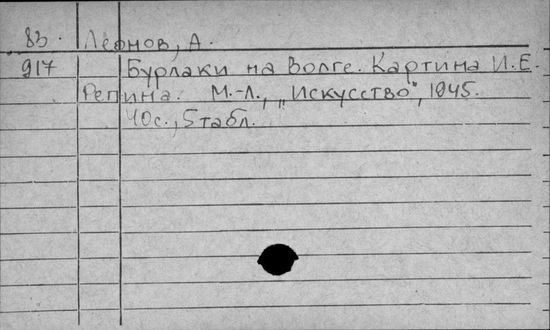 83. Леонов, А.
917 Бурлаки на Волге. Картина И.Е.
Репина. М.-Л., „Искусство", 1945.
40с., 5 табл.